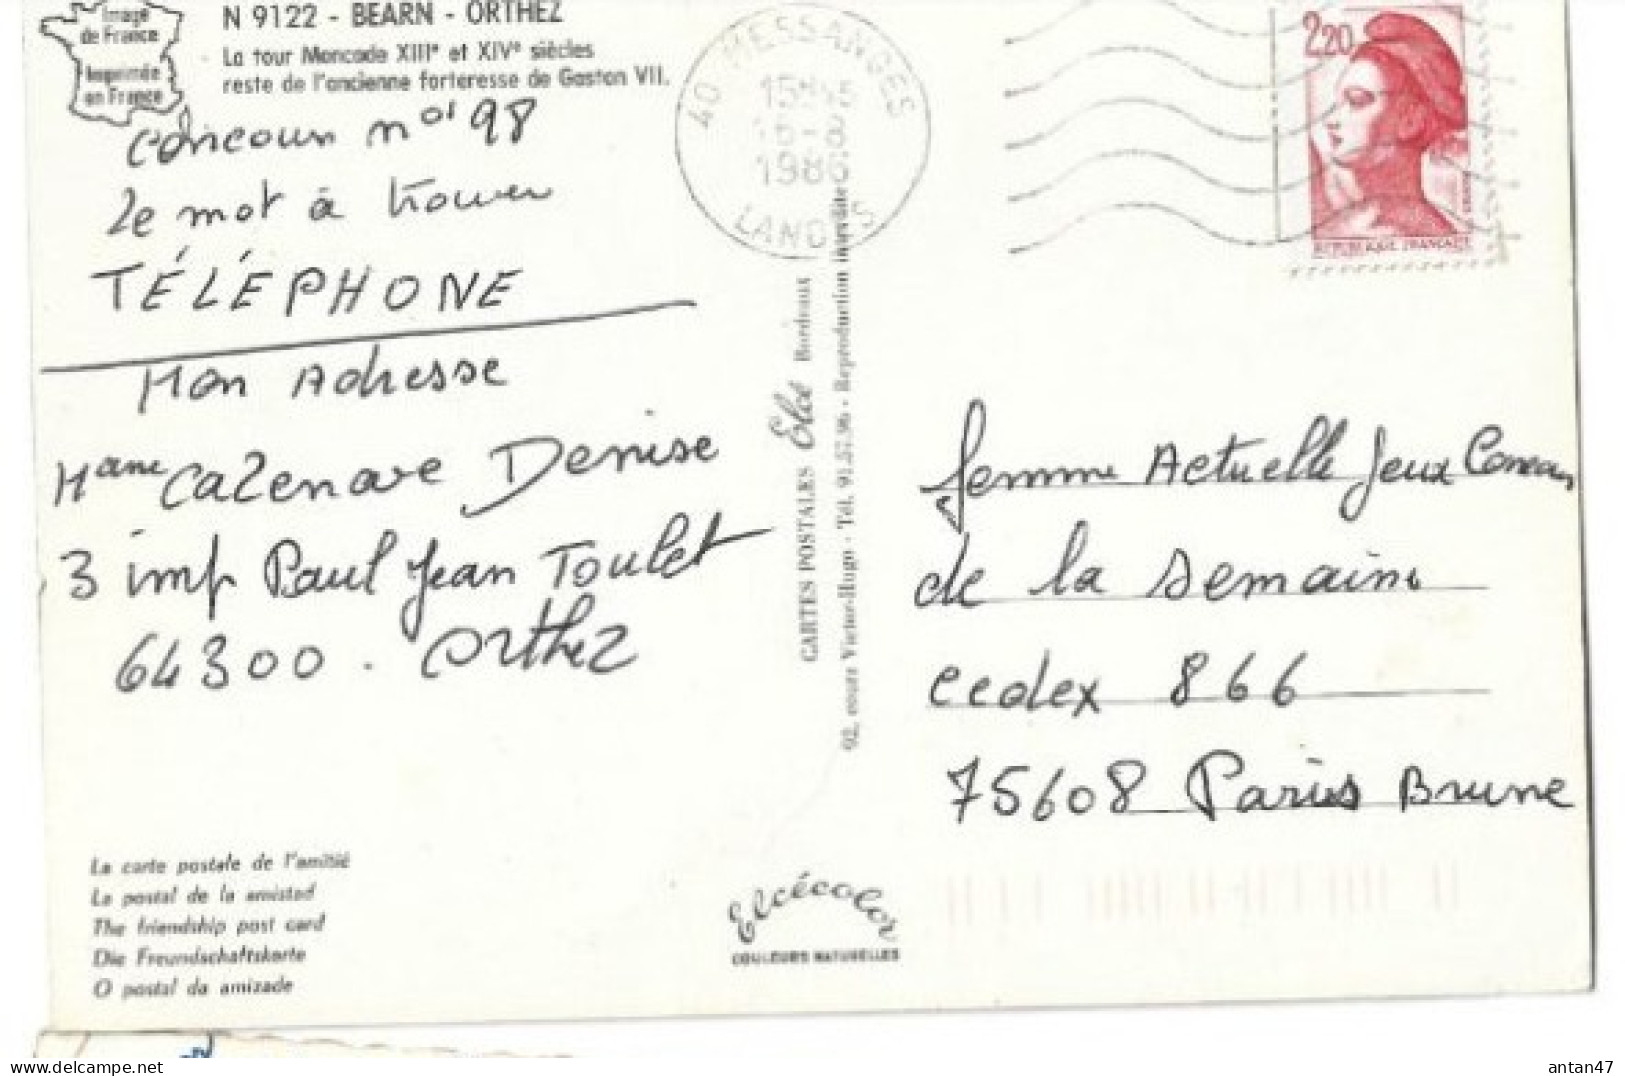 Image
de France
Imprimée
en France
N 9122 - BEARN - ORTHEZ
La tour Moncade XIIIe et XIVe siècles
reste de l'ancienne forteresse de Gaston VII.
40 MESSANGES
1986
LANDES
2,20
REPUBLIQUE FRANÇAISE
concours no 98
le mot à trouver
TÉLÉPHONE
Mon Adresse
Mame Cazenave Denise
3 imp Paul Jean Toulet
64300. Orthez
CARTES POSTALES Elcé Bordeaux
92, cours Victor-Hugo - Tél. 91.57.96 - Reproduction interdite
femme Actuelle Jeux Concours
de la semaine
cedex 866
75608 Paris Brune
La carte postale de l'amitié
La postal de la amistad
The friendship post card
Die Freundschaftskarte
O postal da amizade
Elcécolor
COULEURS NATURELLES
antan47